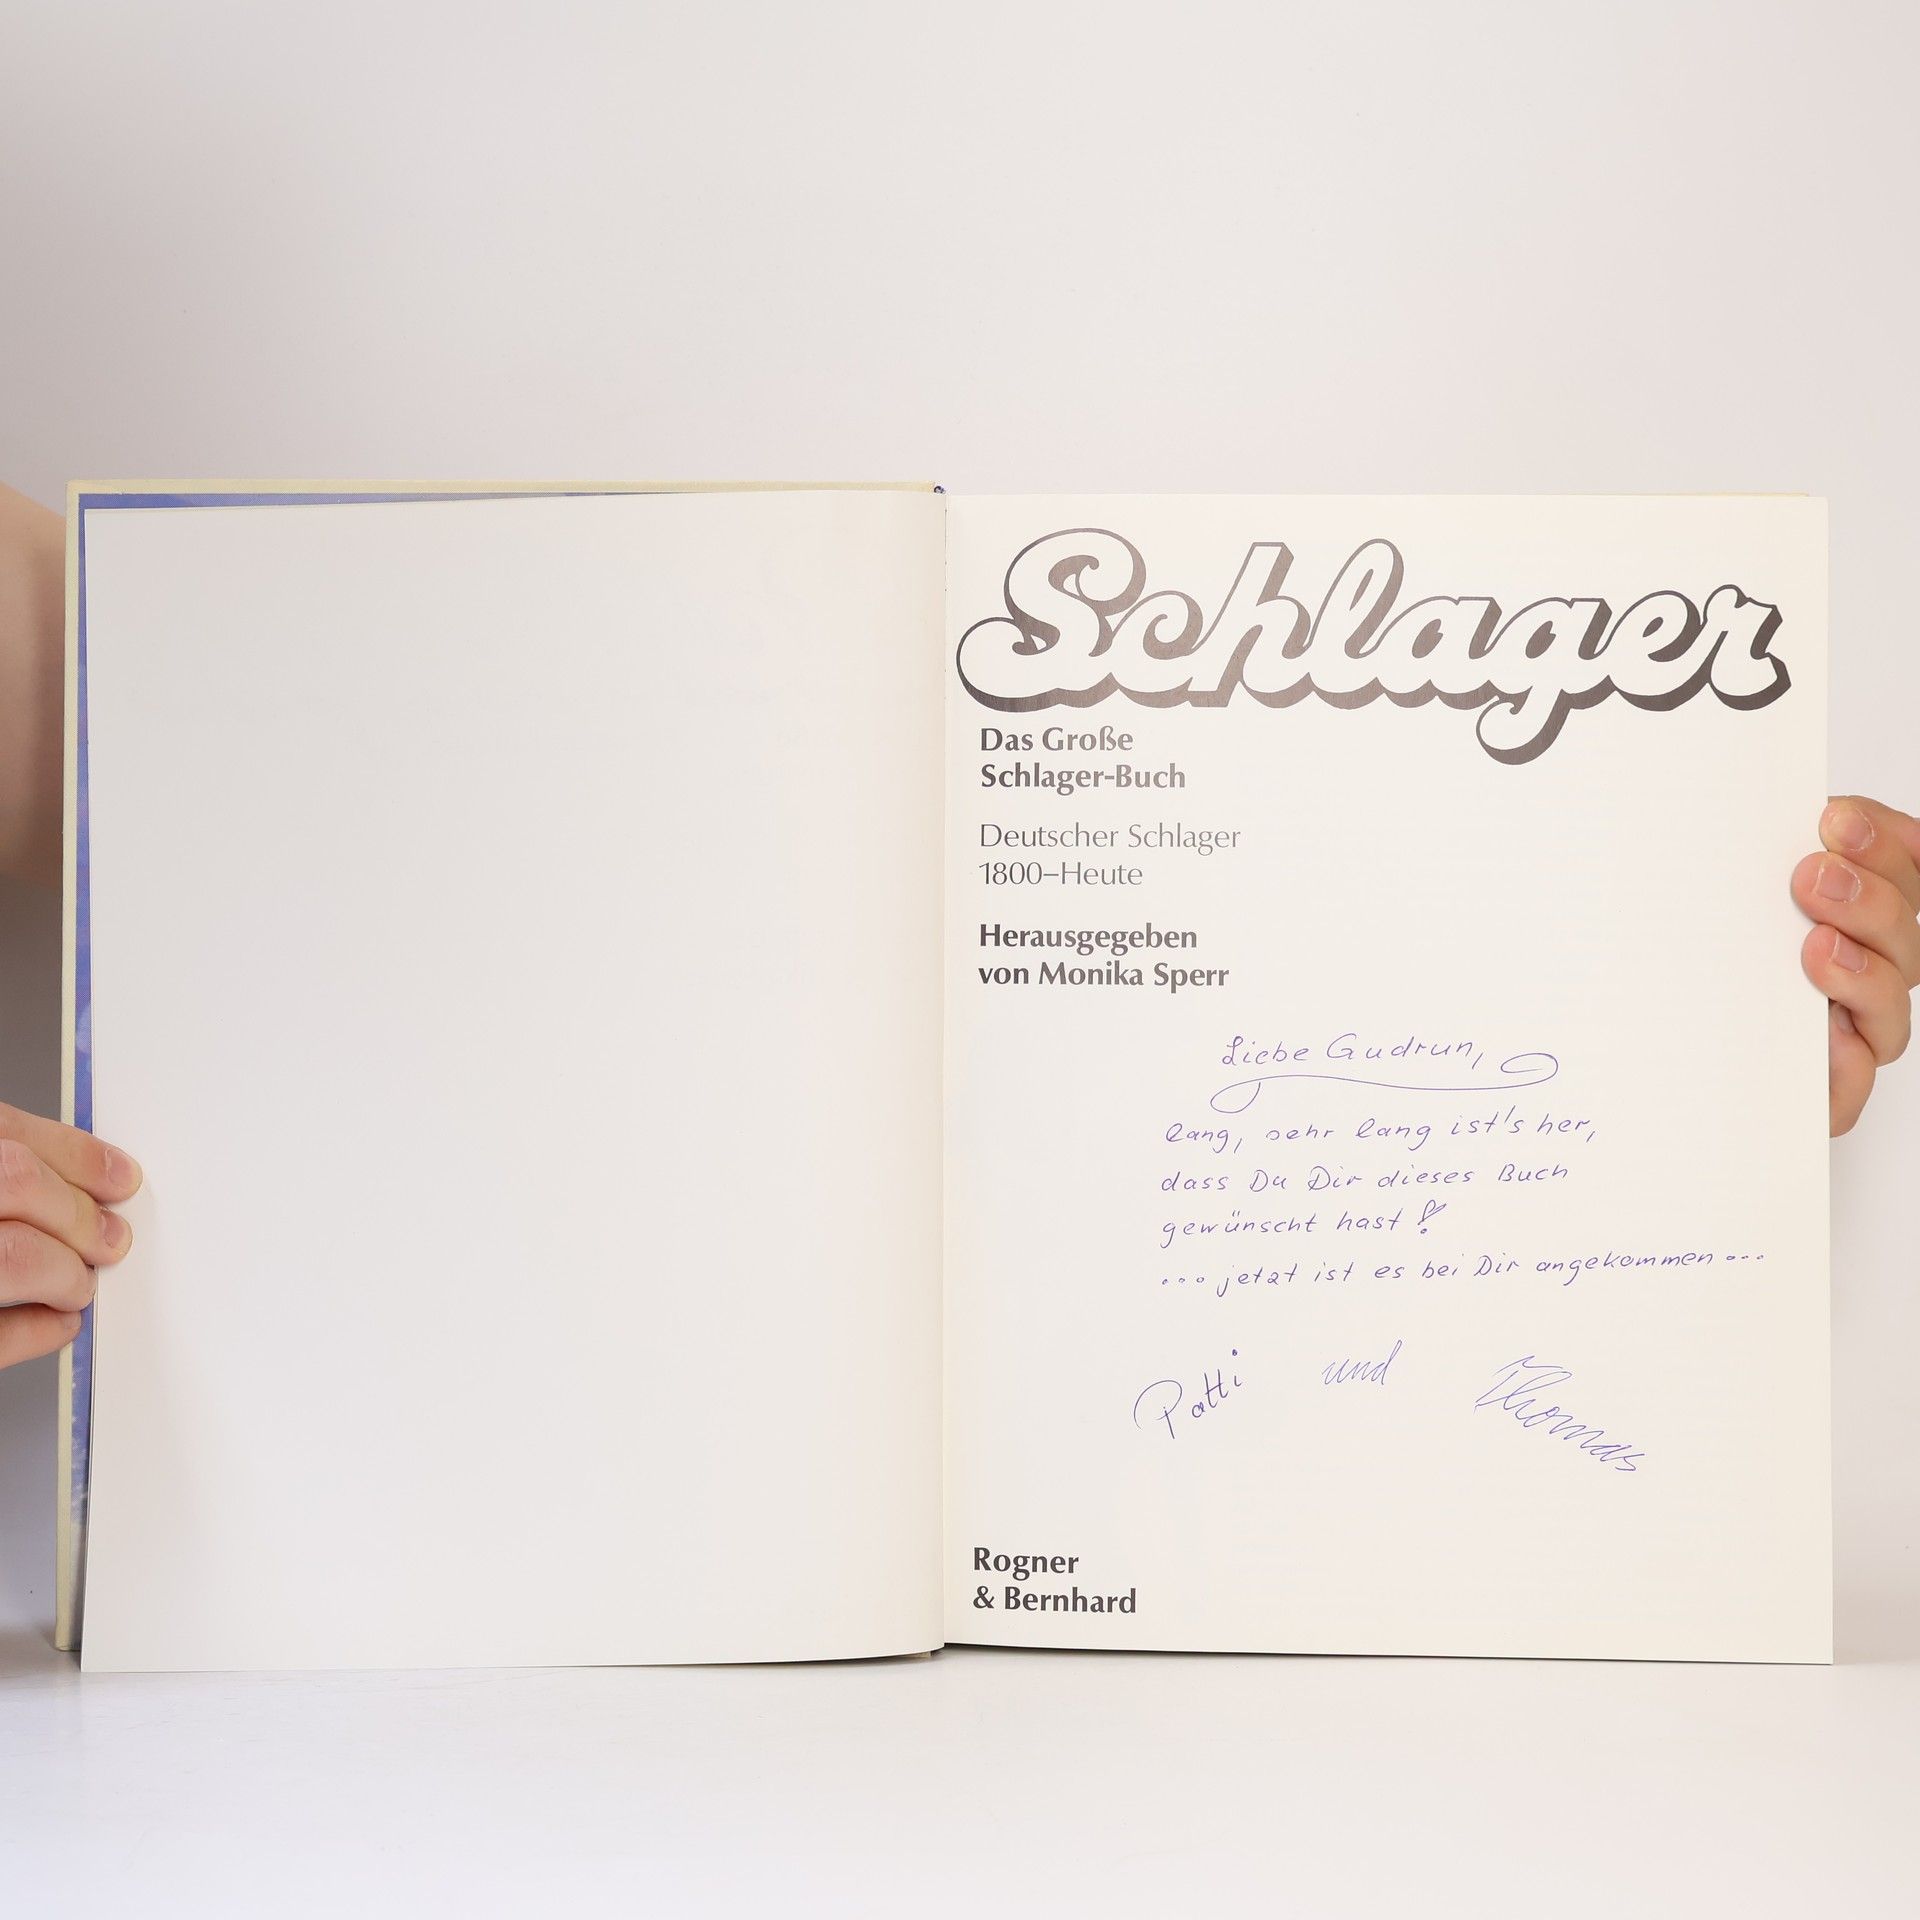 Schlager
Das Große
Schlager-Buch
Deutscher Schlager
1800–Heute
Herausgegeben
von Monika Sperr
Liebe Gudrun,
lang, sehr lang ist's her,
dass Du Dir dieses Buch
gewünscht hast!
... jetzt ist es bei Dir angekommen ...
Patti und Thomas
Rogner
& Bernhard